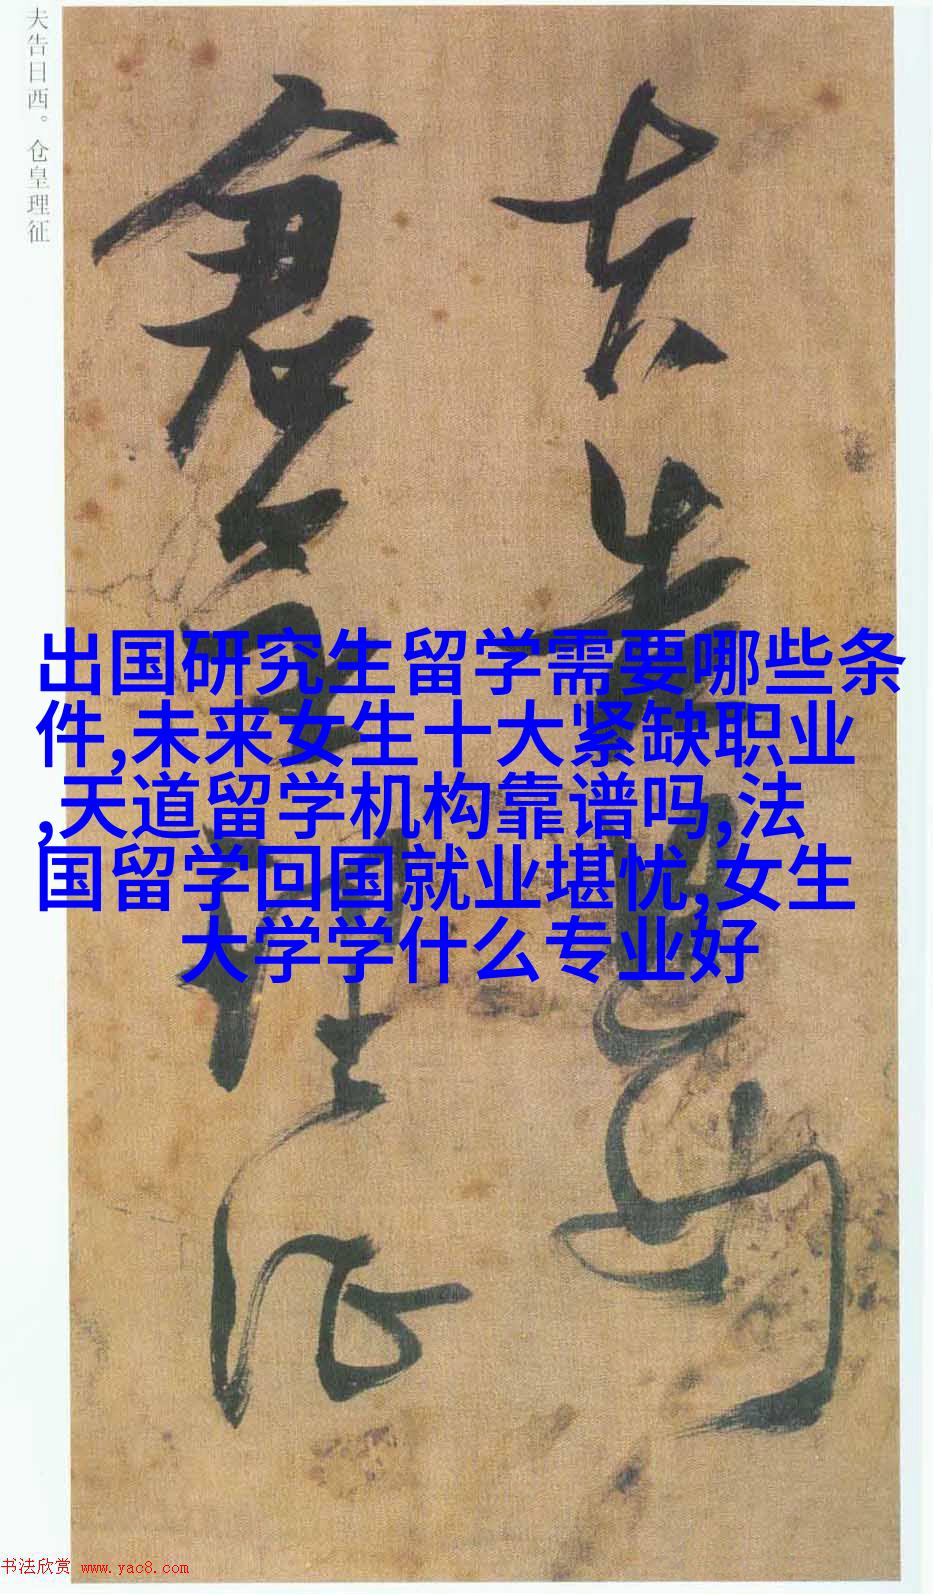 夫告日西。仓皇理征
夫告日西
仓皇理征
出国研究生留学需要哪些条
件,未来女生十大紧缺职业
,天道留学机构靠谱吗,法
国留学回国就业堪忧,女生
大学学什么专业好
书法欣赏 www.yac8.com